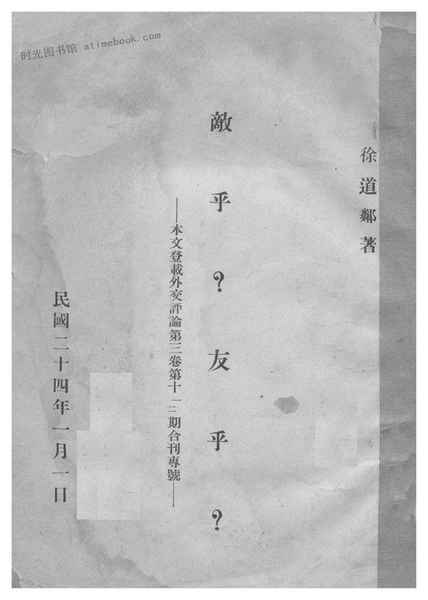 时光图书馆 atimebook.com
徐道鄰著
敵乎？友乎？
——本文登載外交評論第三卷第十一二期合刊專號——
民國二十四年一月一日